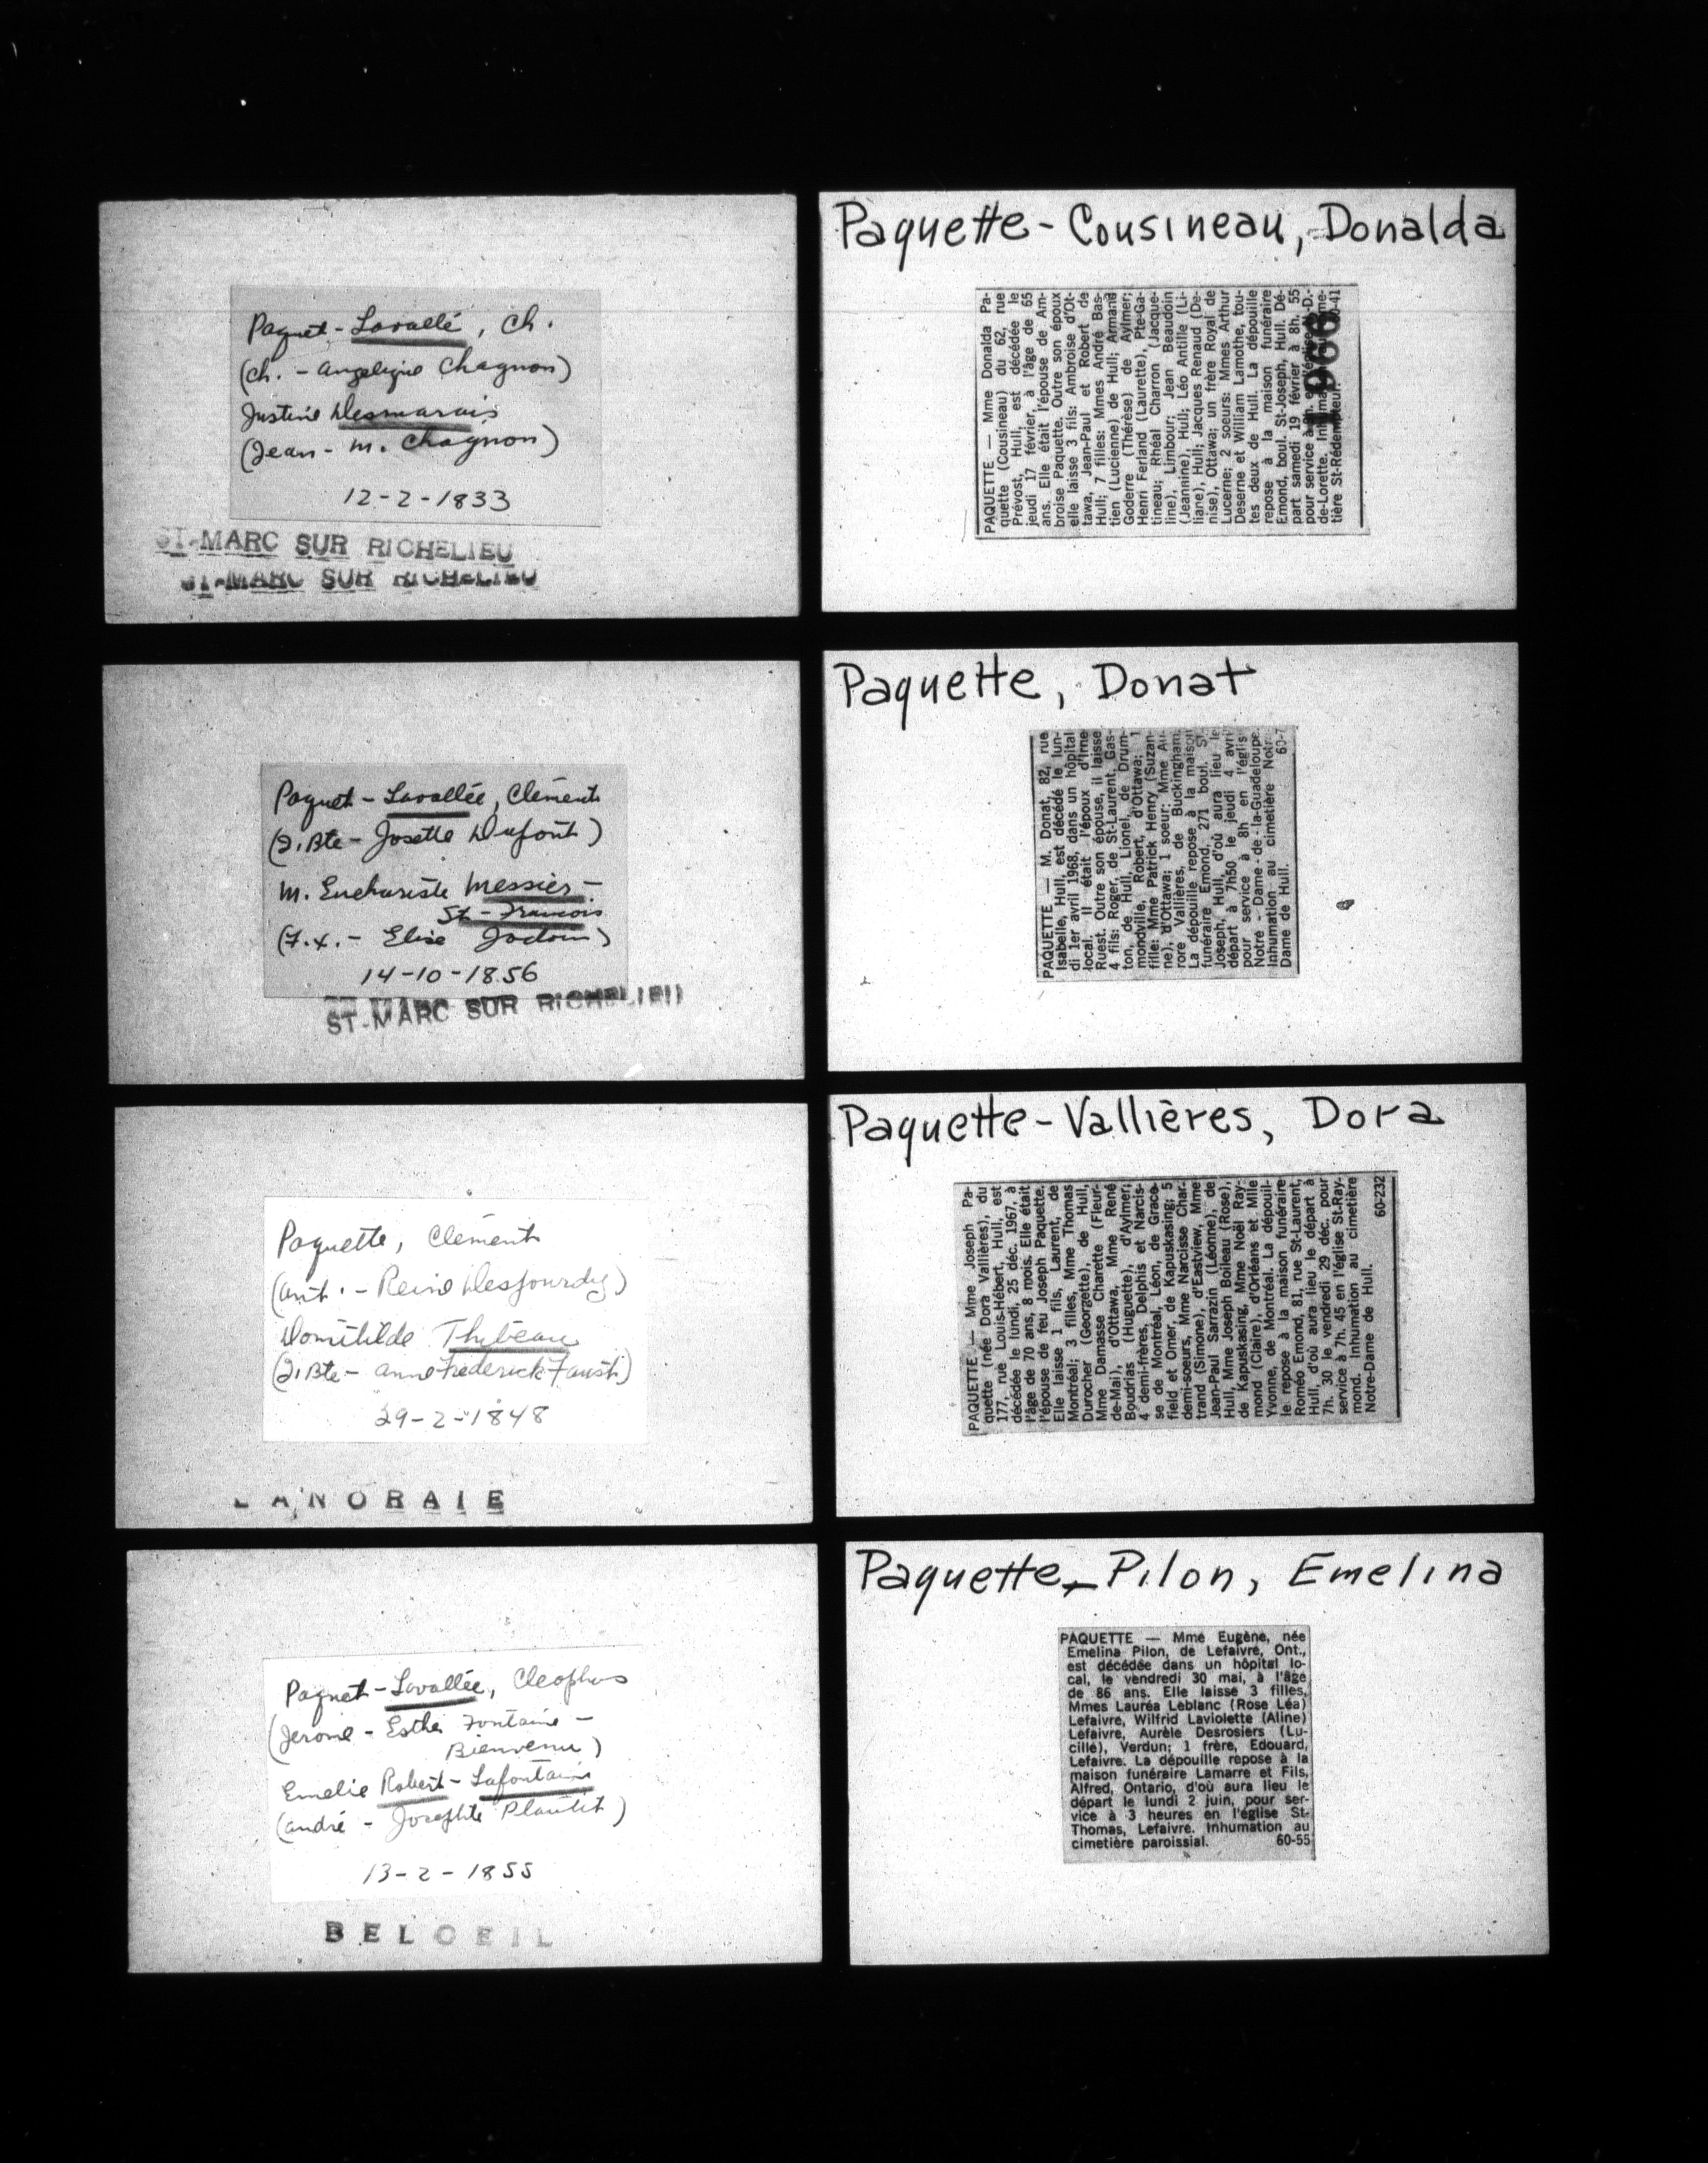 Paquet-Lavallé, Ch.
(Ch. - Angelique Chagnon)
Justine Desmarais
(Jean - M. Chagnon)
12-2-1833
ST-MARC SUR RICHELIEU
ST-MARC SUR RICHELIEU
Paquet-Lavallée, Clément
(J.Bte - Josette Dufont)
M. Euchariste Messier-
St-Francois
(F.X. - Elise Jodoin)
14-10-1856
ST-MARC SUR RICHELIEU
Paquette, Clement
(Ant. - Reine Desjourdy)
Domithilde Thibeau
(J.Bte - Anne Frederick Faust)
29-2-1848
LANORAIE
Paquet-Lavallée, Cleophas
(Jerome - Esther Fontaine -
Bienvenu)
Emelie Robert-Lafontaine
(André - Josephte Plantit)
13-2-1855
BELOEIL
Paquette-Cousineau, Donalda
PAQUETTE — Mme Donalda Pa-
quette (Cousineau) du 62, rue
Prévost, Hull, est décédée le
jeudi 17 février, à l'âge de 65
ans. Elle était l'épouse de Am-
broise Paquette. Outre son époux
elle laisse 3 fils: Ambroise d'Ot-
tawa, Jean-Paul et Robert de
Hull; 7 filles: Mmes André Bas-
tien (Lucienne) de Hull; Armand
Goderre (Thérèse) de Aylmer;
Henri Ferland (Laurette), Pte-Ga-
tineau; Rhéal Charron (Jacque-
line), Limbour; Jean Beaudoin
(Jeannine), Hull; Léo Antille (Li-
liane), Hull; Jacques Renaud (De-
nise), Ottawa; un frère Royal de
Lucerne; 2 soeurs: Mmes Arthur
Deserne et William Lamothe, tou-
tes deux de Hull. La dépouille
repose à la maison funéraire
Emond, boul. St-Joseph, Hull. Dé-
part samedi 19 février à 8h. 55
pour service à 9h. en l'église N.-D.-
de-Lorette. Inhumation au cime-
tière St-Rédempteur. 60-41
1966
Paquette, Donat
PAQUETTE — M. Donat, 82, rue
Isabelle, Hull, est décédé le lun-
di 1er avril 1968, dans un hôpital
local. Il était l'époux d'Irne
Ruest. Outre son épouse, il laisse
4 fils: Roger, de St-Laurent, Gas-
ton, de Hull, Lionel, de Drum-
mondville, Robert, d'Ottawa; 1
fille: Mme Patrick Henry (Suzan-
ne), d'Ottawa; 1 soeur: Mme Au-
rore Vallières, de Buckingham.
La dépouille repose à la maison
funéraire Emond, 271 boul. St-
Joseph, Hull, d'où aura lieu le
départ à 7h50 le jeudi 4 avril
pour service à 8h en l'église
Notre-Dame-de-la-Guadeloupe.
Inhumation au cimetière Notre-
Dame de Hull. 60-7
Paquette-Vallières, Dora
PAQUETTE — Mme Joseph Pa-
quette (née Dora Vallières), du
177, rue Louis-Hébert, Hull, est
décédée le lundi, 25 déc. 1967, à
l'âge de 70 ans, 8 mois. Elle était
l'épouse de feu Joseph Paquette.
Elle laisse 1 fils, Laurent, de
Montréal; 3 filles, Mme Thomas
Durocher (Georgette), de Hull,
Mme Damasse Charette (Fleur-
de-Mai), d'Ottawa, Mme René
Boudrias (Huguette), d'Aylmer;
4 demi-frères, Delphis et Narcis-
se de Montréal, Léon, de Grace-
field et Omer, de Kapuskasing; 5
demi-soeurs, Mme Narcisse Char-
trand (Simone), d'Eastview, Mme
Jean-Paul Sarrazin (Léonne), de
Hull, Mme Joseph Boileau (Rose),
de Kapuskasing, Mme Noël Ray-
mond (Claire), d'Orléans et Mlle
Yvonne, de Montréal. La dépouil-
le repose à la maison funéraire
Roméo Emond, 81, rue St-Laurent,
Hull, d'où aura lieu le départ à
7h. 30 le vendredi 29 déc. pour
service à 7h. 45 en l'église St-Ray-
mond. Inhumation au cimetière
Notre-Dame de Hull. 60-232
Paquette-Pilon, Emelina
PAQUETTE — Mme Eugène, née
Emelina Pilon, de Lefaivre, Ont.,
est décédée dans un hôpital lo-
cal, le vendredi 30 mai, à l'âge
de 86 ans. Elle laisse 3 filles,
Mmes Lauréa Leblanc (Rose Léa)
Lefaivre, Wilfrid Laviolette (Aline)
Lefaivre, Aurèle Desrosiers (Lu-
cille), Verdun; 1 frère, Edouard,
Lefaivre. La dépouille repose à la
maison funéraire Lamarre et Fils,
Alfred, Ontario, d'où aura lieu le
départ le lundi 2 juin, pour ser-
vice à 3 heures en l'église St-
Thomas, Lefaivre. Inhumation au
cimetière paroissial. 60-55